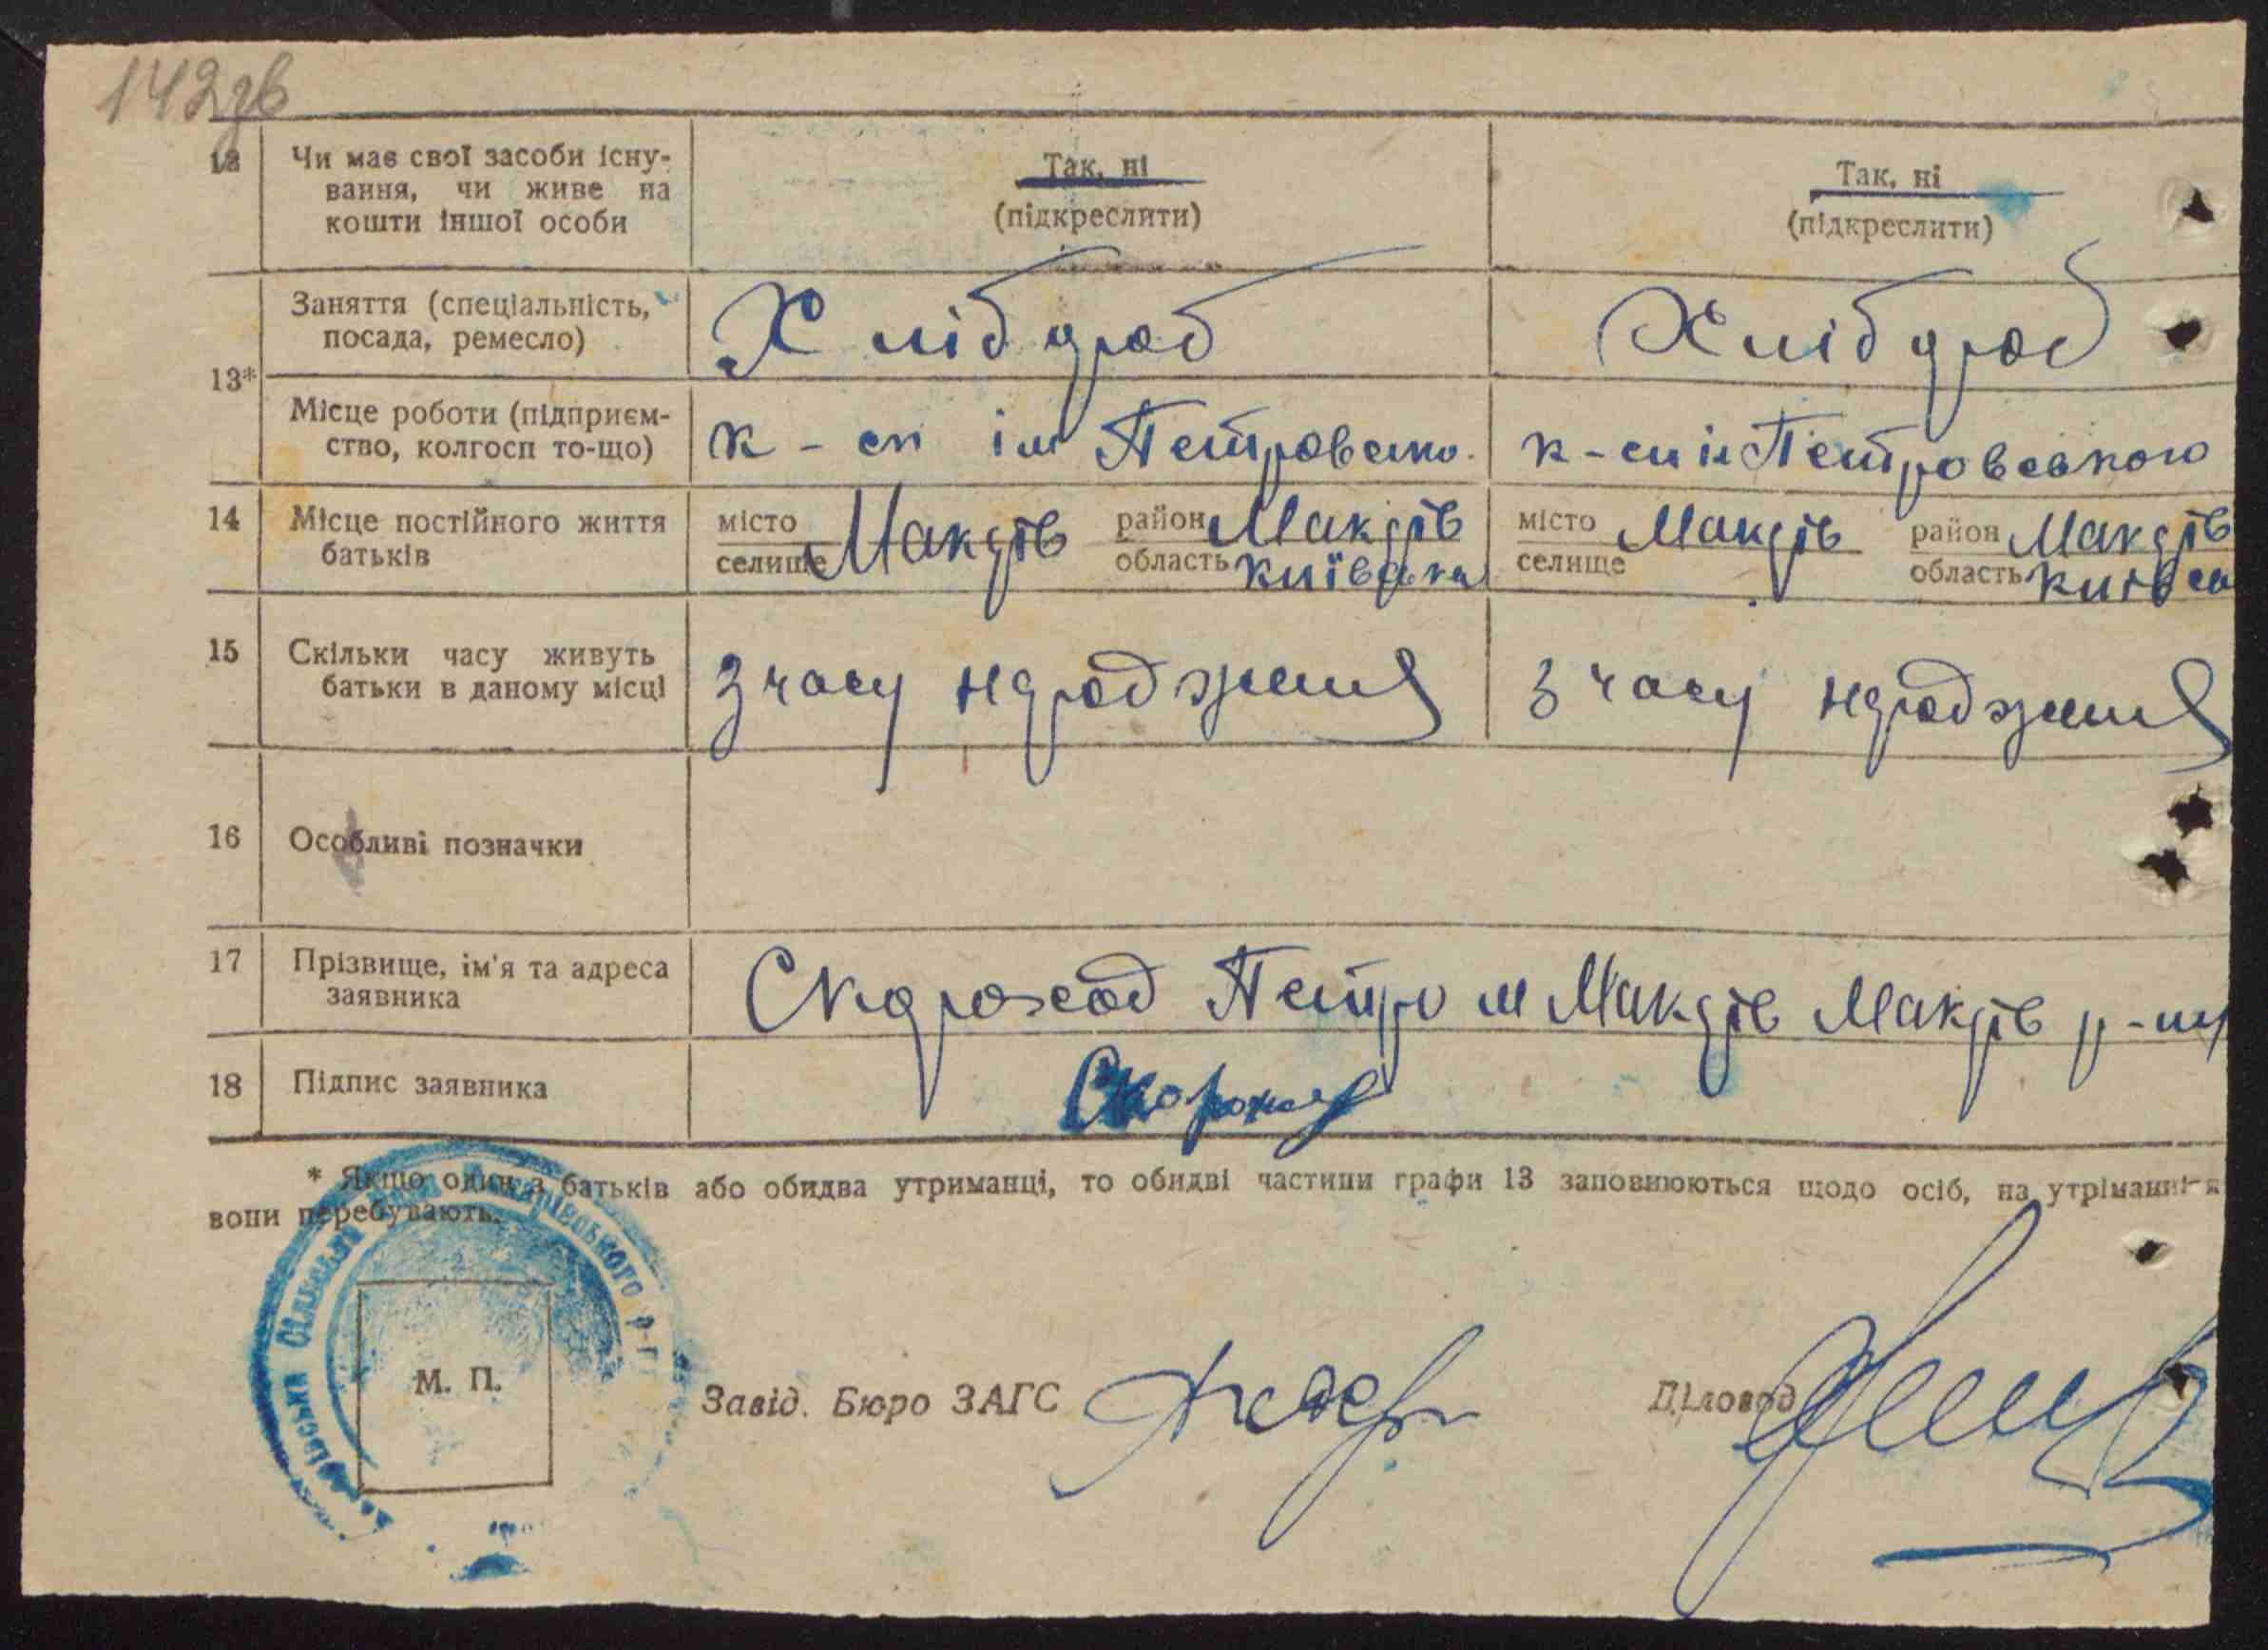 142зв
12 Чи має свої засоби існу-
вання, чи живе на
кошти іншої особи
Так, ні
(підкреслити)
Так, ні
(підкреслити)
13*
Заняття (спеціальність,
посада, ремесло)
Хлібороб
Хлібороб
Місце роботи (підприєм-
ство, колгосп то-що)
к-сп ім Петровсько.
к-сп ім Петровського
14 Місце постійного життя
батьків
місто
селище
Макарів
район Макарів
область Київська
місто
селище
Макарів
район Макарів
область
15 Скільки часу живуть
батьки в даному місці
З часу народження
З часу народження
16 Особливі позначки
17 Прізвище, ім'я та адреса
заявника
Скороход Петро м Макарів Макарів р-ну
18 Підпис заявника
* Якщо один з батьків або обидва утриманці, то обидві частини графи 13 заповнюються щодо осіб, на утріманні
вони перебувають.
Сільська Рада Макарівського р-
М. П.
Завід. Бюро ЗАГС
Діловод